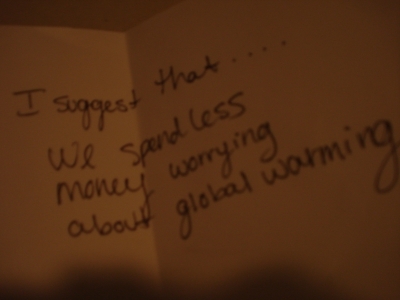 I suggest that....
We spend less
money worrying
about global warming